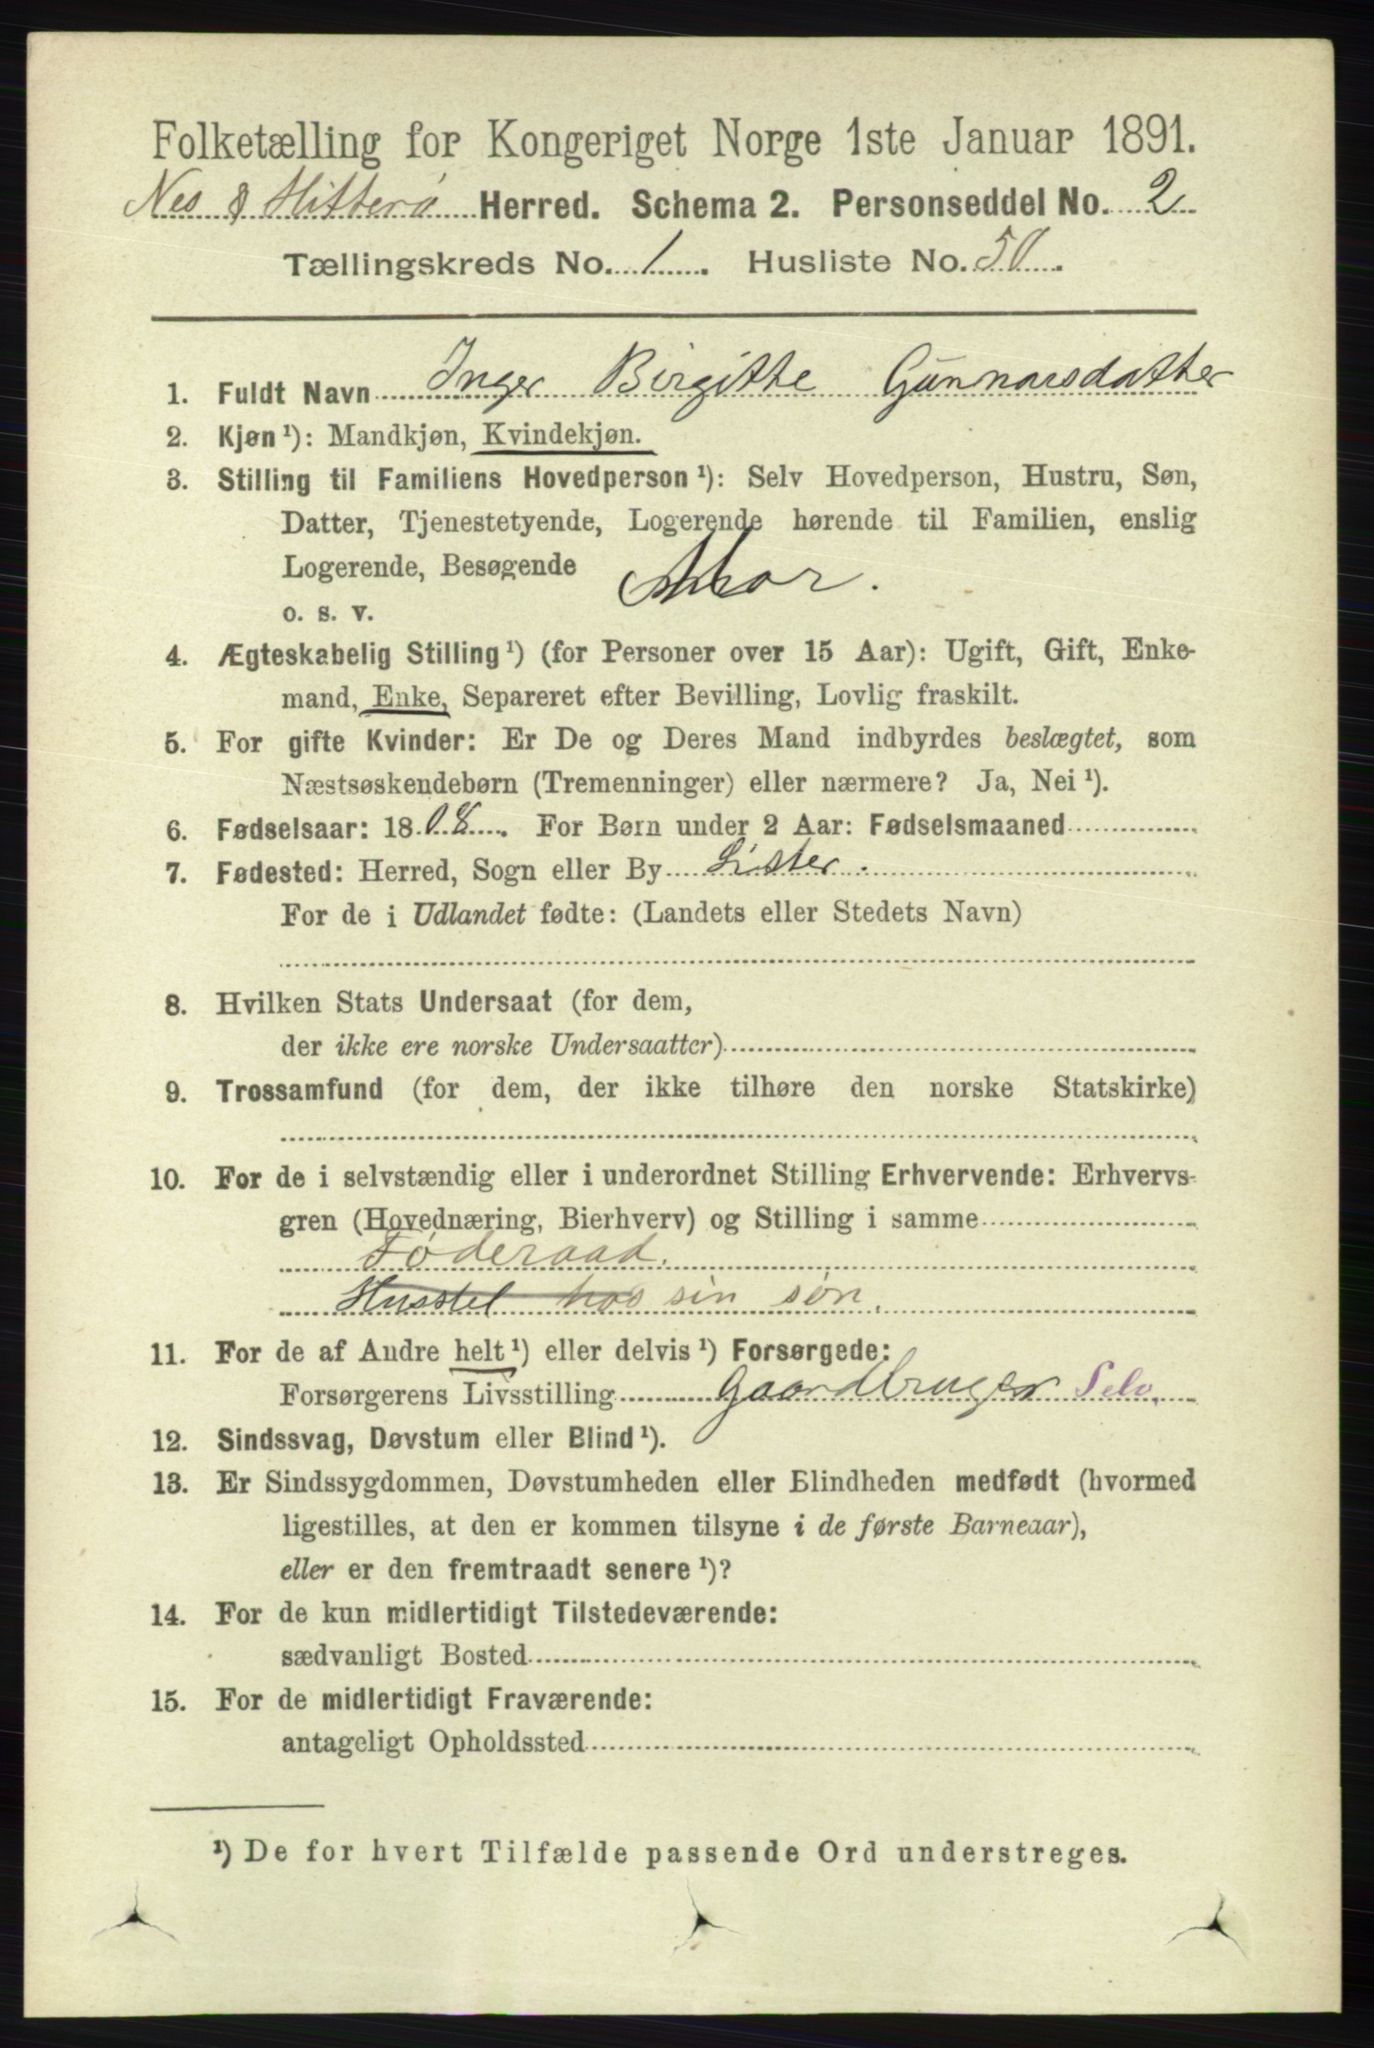 Folketælling for Kongeriget Norge 1ste Januar 1891.
Nes & Hitterø Herred. Schema 2. Personseddel No. 2
Tællingskreds No. 1. Husliste No. 50.
1. Fuldt Navn Inger Birgitte Gunnarsdatter
2. Kjøn¹): Mandkjøn, Kvindekjøn.
3. Stilling til Familiens Hovedperson¹): Selv Hovedperson, Hustru, Søn,
Datter, Tjenestetyende, Logerende hørende til Familien, enslig
Logerende, Besøgende Mor.
o. s. v.
4. Ægteskabelig Stilling¹) (for Personer over 15 Aar): Ugift, Gift, Enke-
mand, Enke, Separeret efter Bevilling, Lovlig fraskilt.
5. For gifte Kvinder: Er De og Deres Mand indbyrdes beslægtet, som
Næstsøskendebørn (Tremenninger) eller nærmere? Ja, Nei¹).
6. Fødselsaar: 1808. For Børn under 2 Aar: Fødselsmaaned
7. Fødested: Herred, Sogn eller By Lister.
For de i Udlandet fødte: (Landets eller Stedets Navn)
8. Hvilken Stats Undersaat (for dem,
der ikke ere norske Undersaatter)
9. Trossamfund (for dem, der ikke tilhøre den norske Statskirke)
10. For de i selvstændig eller i underordnet Stilling Erhvervende: Erhvervs-
gren (Hovednæring, Bierhverv) og Stilling i samme
Føderaad.
Husstel hos sin søn.
11. For de af Andre helt¹) eller delvis¹) Forsørgede:
Forsørgerens Livsstilling Gaardbruger Selv.
12. Sindssvag, Døvstum eller Blind¹).
13. Er Sindssygdommen, Døvstumheden eller Blindheden medfødt (hvormed
ligestilles, at den er kommen tilsyne i de første Barneaar),
eller er den fremtraadt senere¹)?
14. For de kun midlertidigt Tilstedeværende:
sædvanligt Bosted
15. For de midlertidigt Fraværende:
antageligt Opholdssted
¹) De for hvert Tilfælde passende Ord understreges.